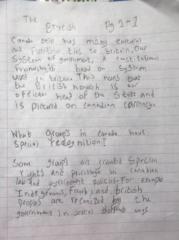 The
British Pg 1-1
Canada still has many
our ties to Britain. Our
System of government, a constitutional
monarchy is based on System
used in britain This means that
the British Monarch is our
official head of the State and
is pictured on canadian currency.
What Groups in Canada have
Special recognition?
Some groups are granted Special
rights and privileges in canadian
law and government policies. For example
Indigenous, French and british
peoples are recognized by the
government in several different ways